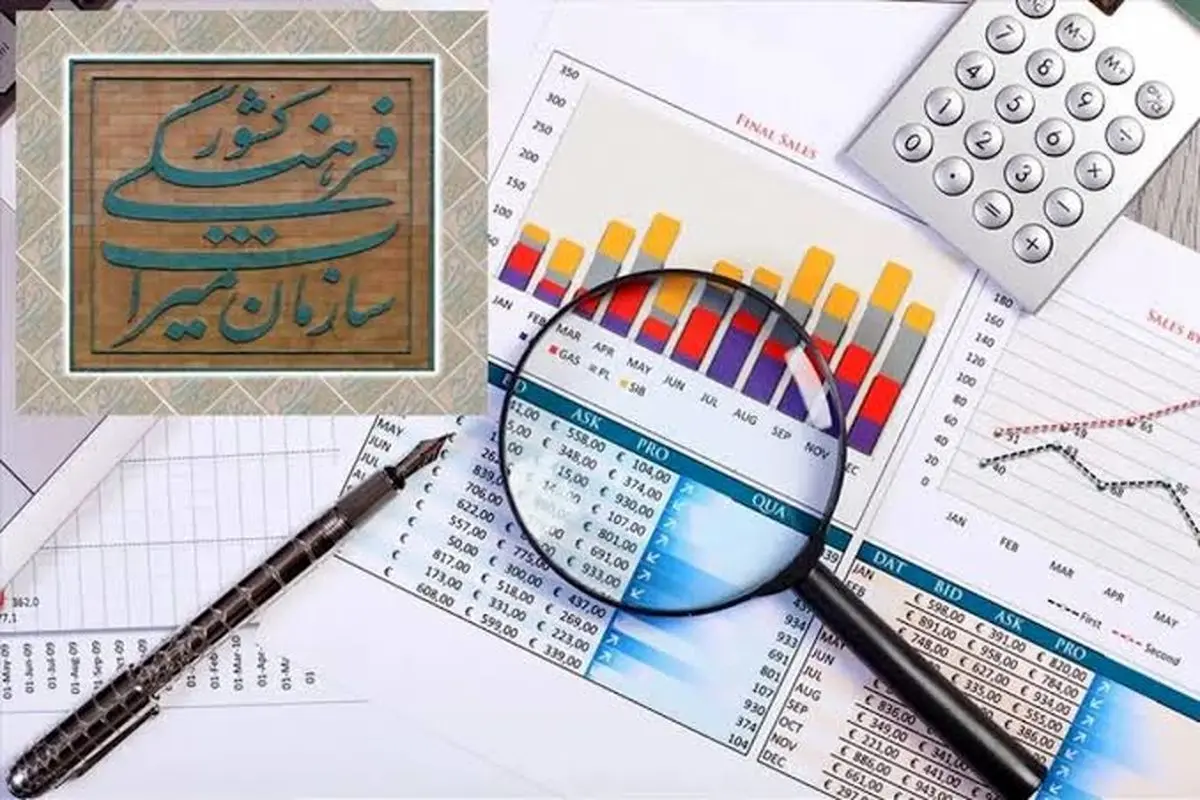 سازمان میراث
فرهنگی کشور
FINAL SALES
350
300
250
200
150
100
JAN
FEB
MAR
APR
MAY
JUN
JUL
AUG
SEP
NOV
GAS
PL
SIB
ASK PRO QUA
€ 558,00 € 104,00
€ 348,00 € 374,00
€ 930,00
€ 107,00
€ 801,00
€ 691,00
€ 933,00
MAY
JUN
JUL
706,00
622,00
557,00 € 775,00
50,00 € 300,00 € 437,00
€ 817,00 € 518,00 € 269,00
€ 173,00 € 331,00 € 223,00
€ 608,00 € 599,00 € 339,00
934
933
691
801
107
930
374
104
7 8 9
4 5 6
1 2 3
0 . =
M-
M+
÷
+
−
×
180
160
140
120
100
80
60
40
20
0
JAN
FEB
MAR
APR
MAY
First
Second
DAT BID ASK PRO
JAN € 598,00 € 391,00 € 820,00
€ 891,00 € 958,00 € 784,00
€ 748,00 € 627,00 € 934,00
MAY € 335,00 € 555,00
JUN € 386,00
JUL € 836,00
AUG € 349,00
SEP € 221,00
OCT € 886,00 € 441,00
NOV € 661,00 € 943,00
DEC
01-May-09
01-Jun-09
01-Jul-09
01-Aug-09
01-Sep-09
01-Feb
01-Mar-10